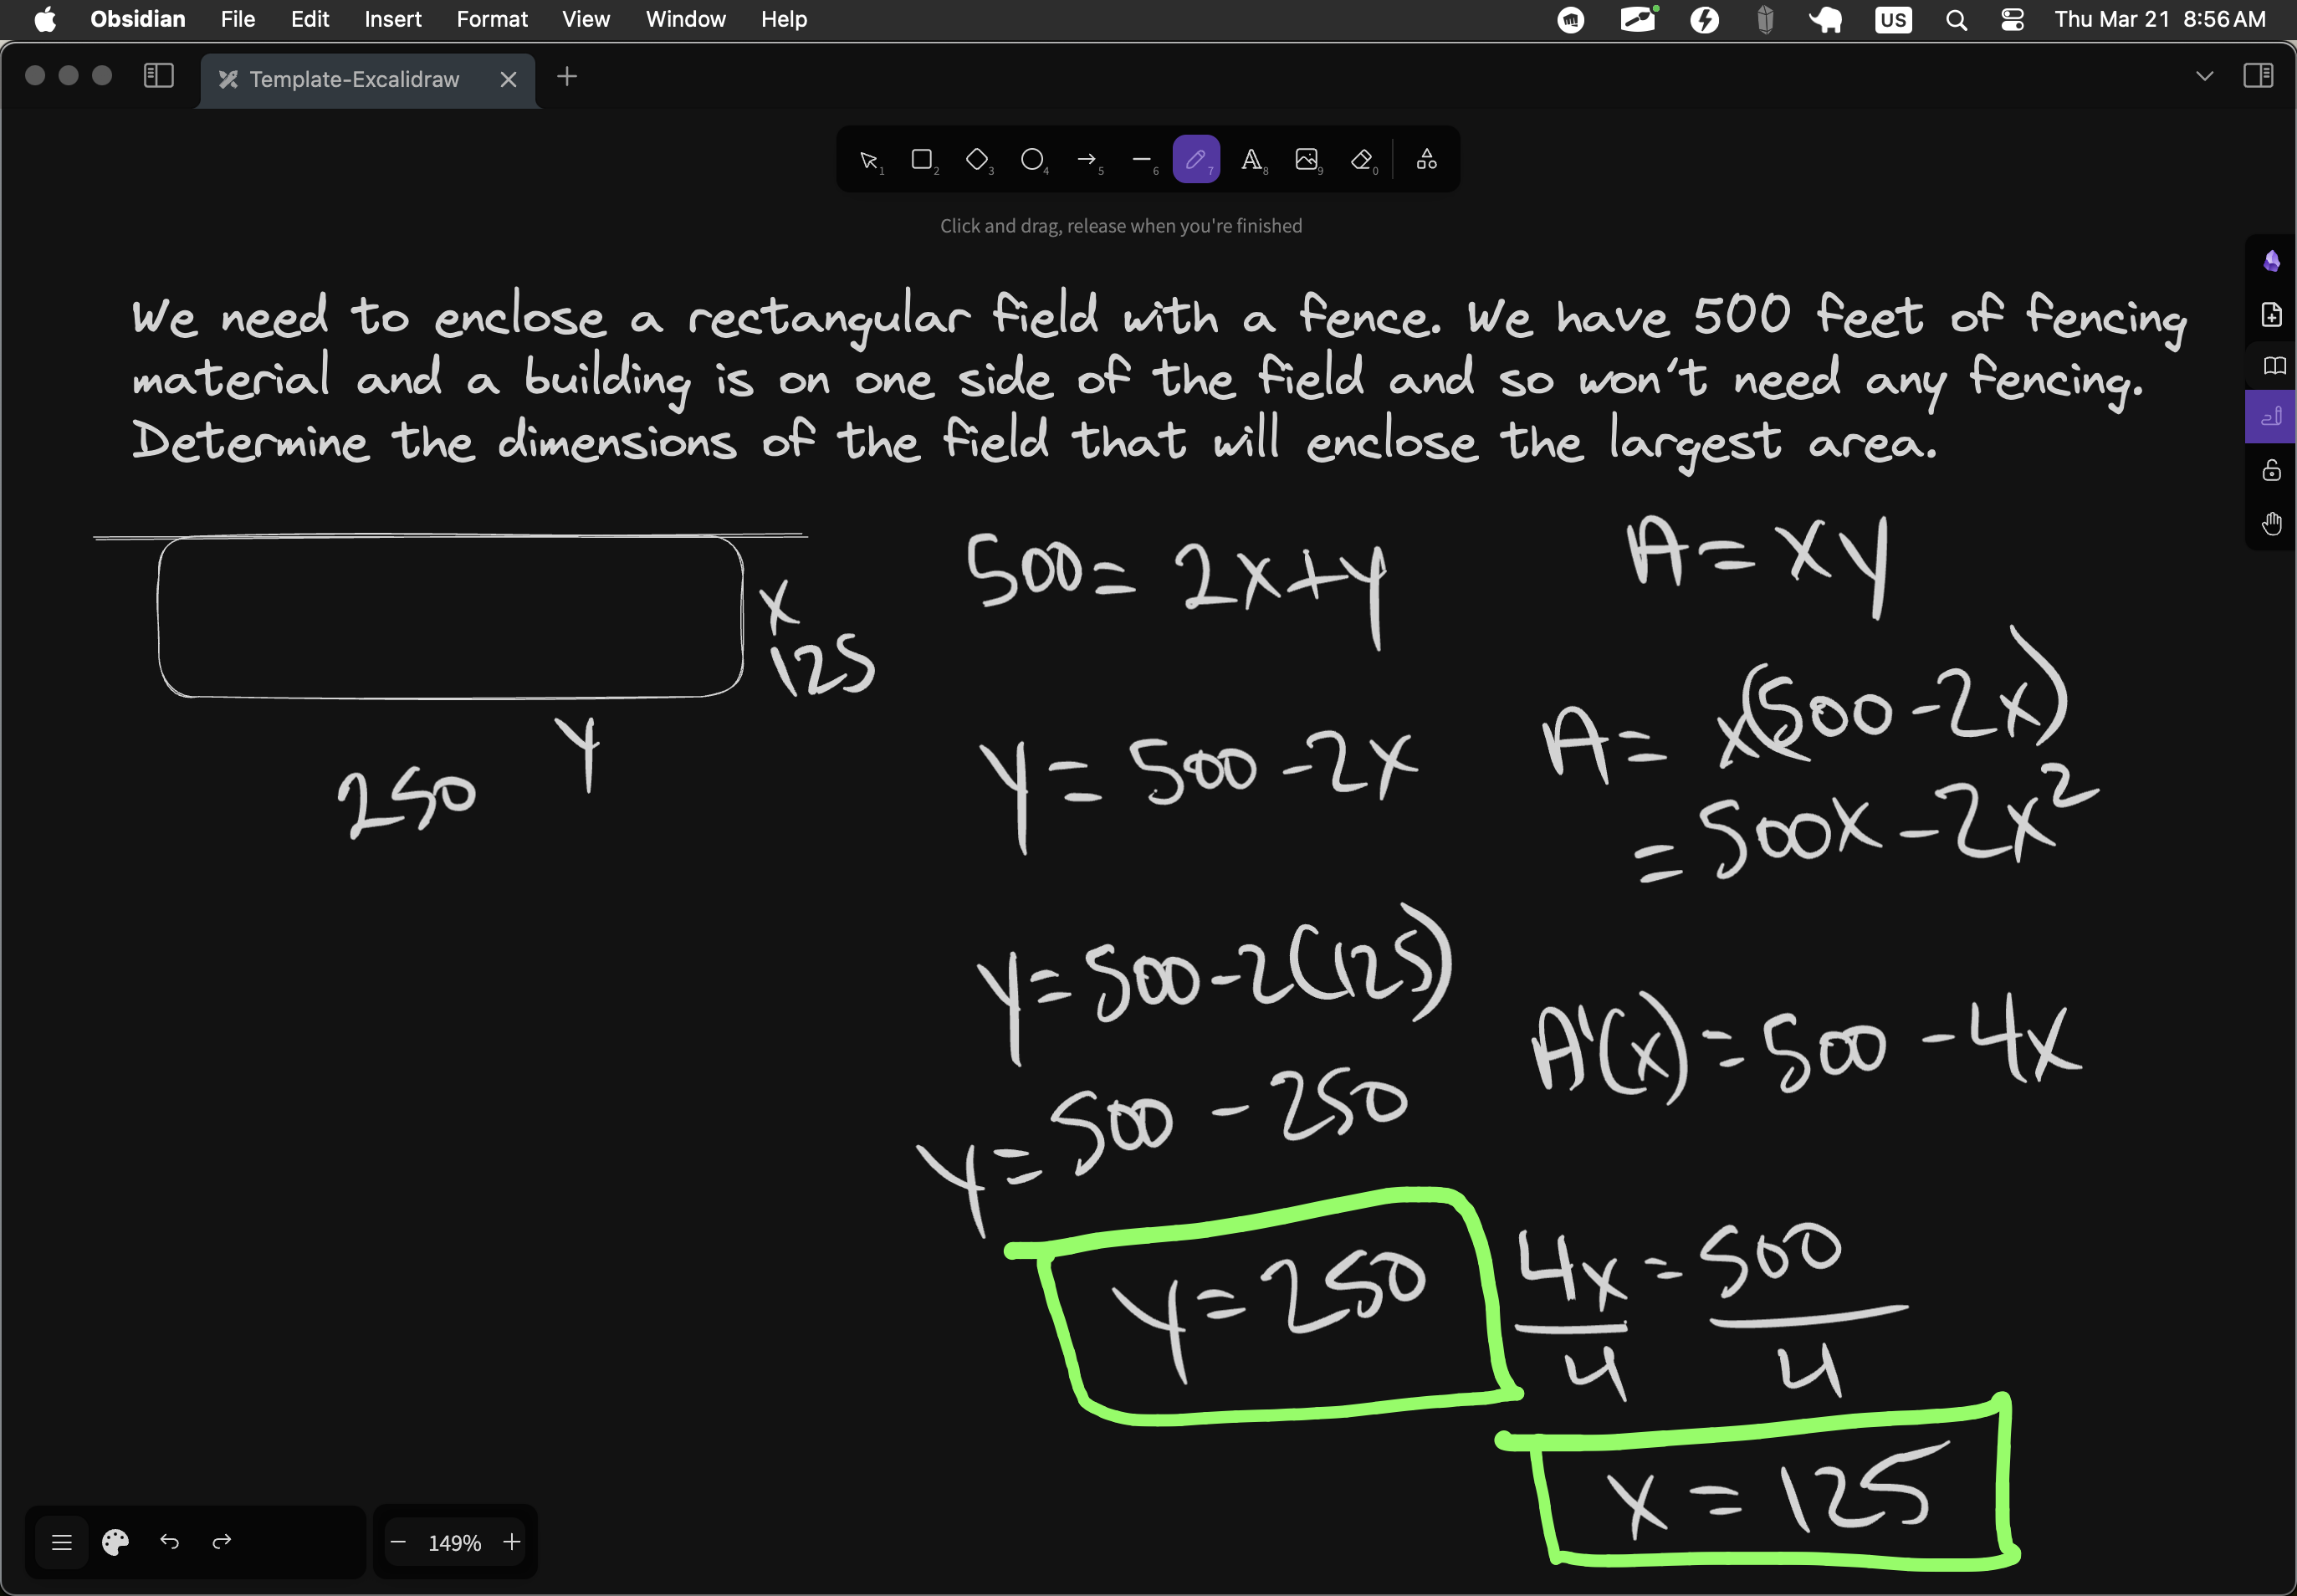 Obsidian File Edit Insert Format View Window Help US Thu Mar 21 8:56 AM
Template-Excalidraw
1 2 3 4 5 6 7 8 9 0
Click and drag, release when you're finished
We need to enclose a rectangular field with a fence. We have 500 feet of fencing
material and a building is on one side of the field and so won't need any fencing.
Determine the dimensions of the field that will enclose the largest area.
x
125
y
250
500 = 2x + y
y = 500 - 2x
y = 500 - 2(125)
y = 500 - 250
y = 250
A = xy
A = x(500 - 2x)
= 500x - 2x²
A'(x) = 500 - 4x
4x = 500
4 4
x = 125
149%